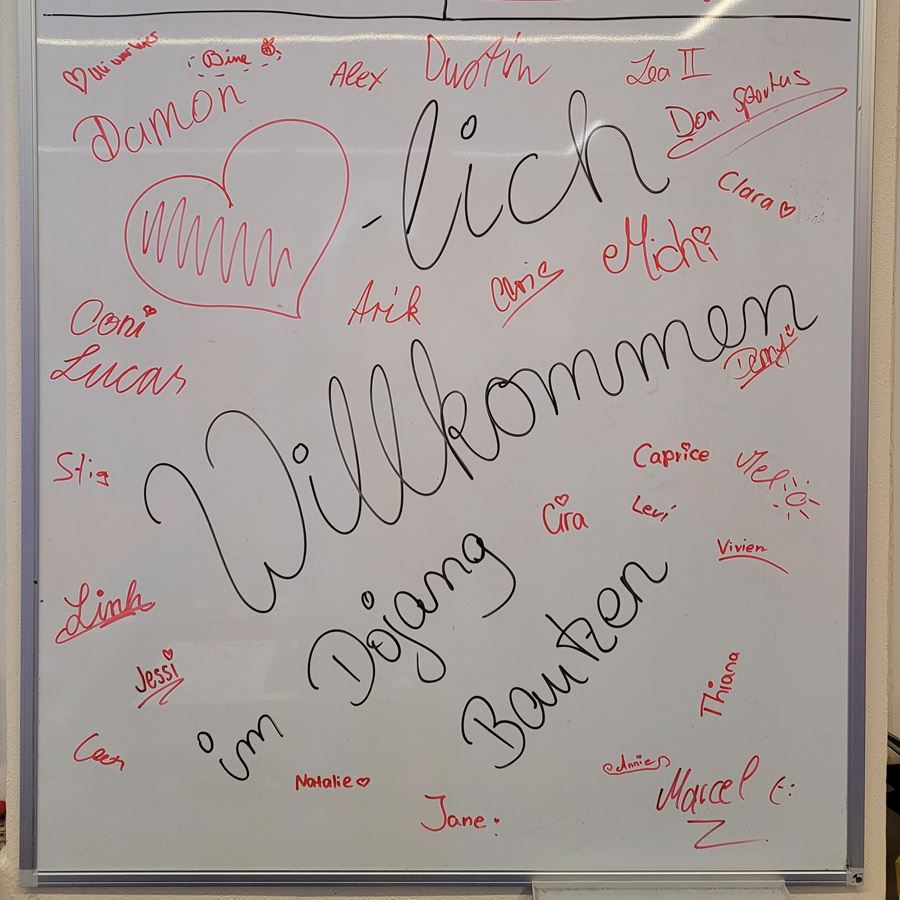 Bine
Alex
Dustin
Lea II
Damon
Don
-lich
Clara
Michi
Arik
Chris
Coni
Lucas
Willkommen
Stig
Caprice
Mel
Cira
Levi
Vivien
im Dojang
Bautzen
Linh
Jessi
Thiana
Natalie
Annie
Marcel (:
Jane :